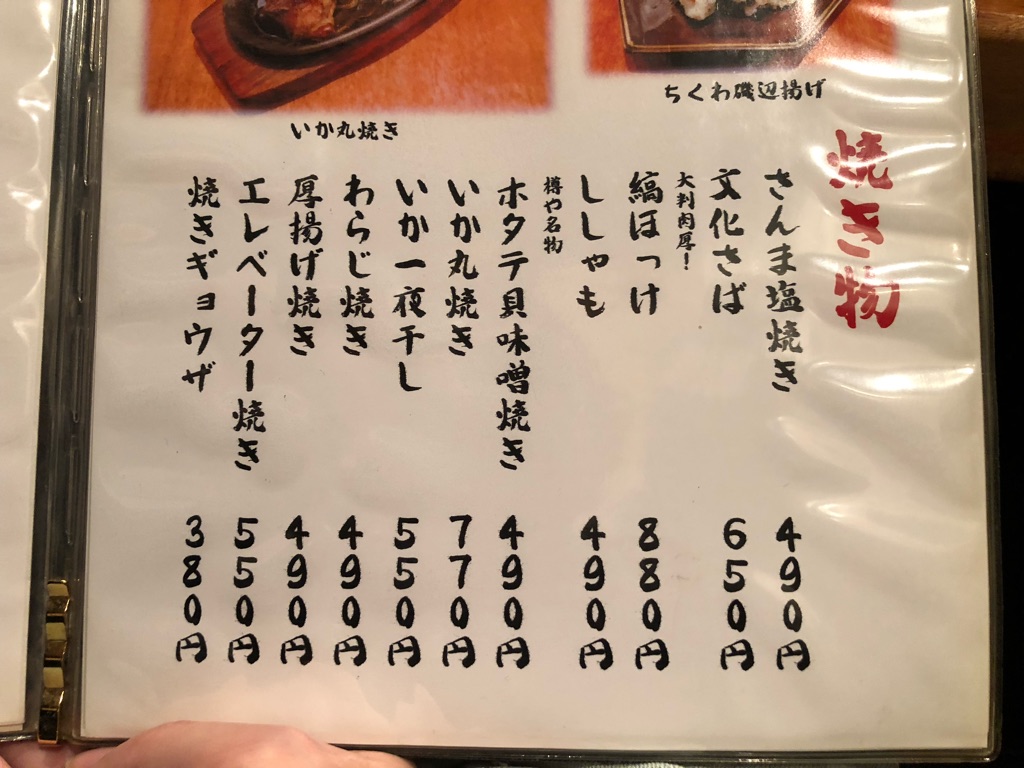 いか丸焼き
ちくわ磯辺揚げ
焼き物
さんま塩焼き 490円
文化さば 650円
大判肉厚！
縞ほっけ 880円
ししゃも 490円
樽や名物
ホタテ貝味噌焼き 490円
いか丸焼き 770円
いか一夜干し 550円
わらじ焼き 490円
厚揚げ焼き 490円
エレベーター焼き 550円
焼きギョウザ 380円